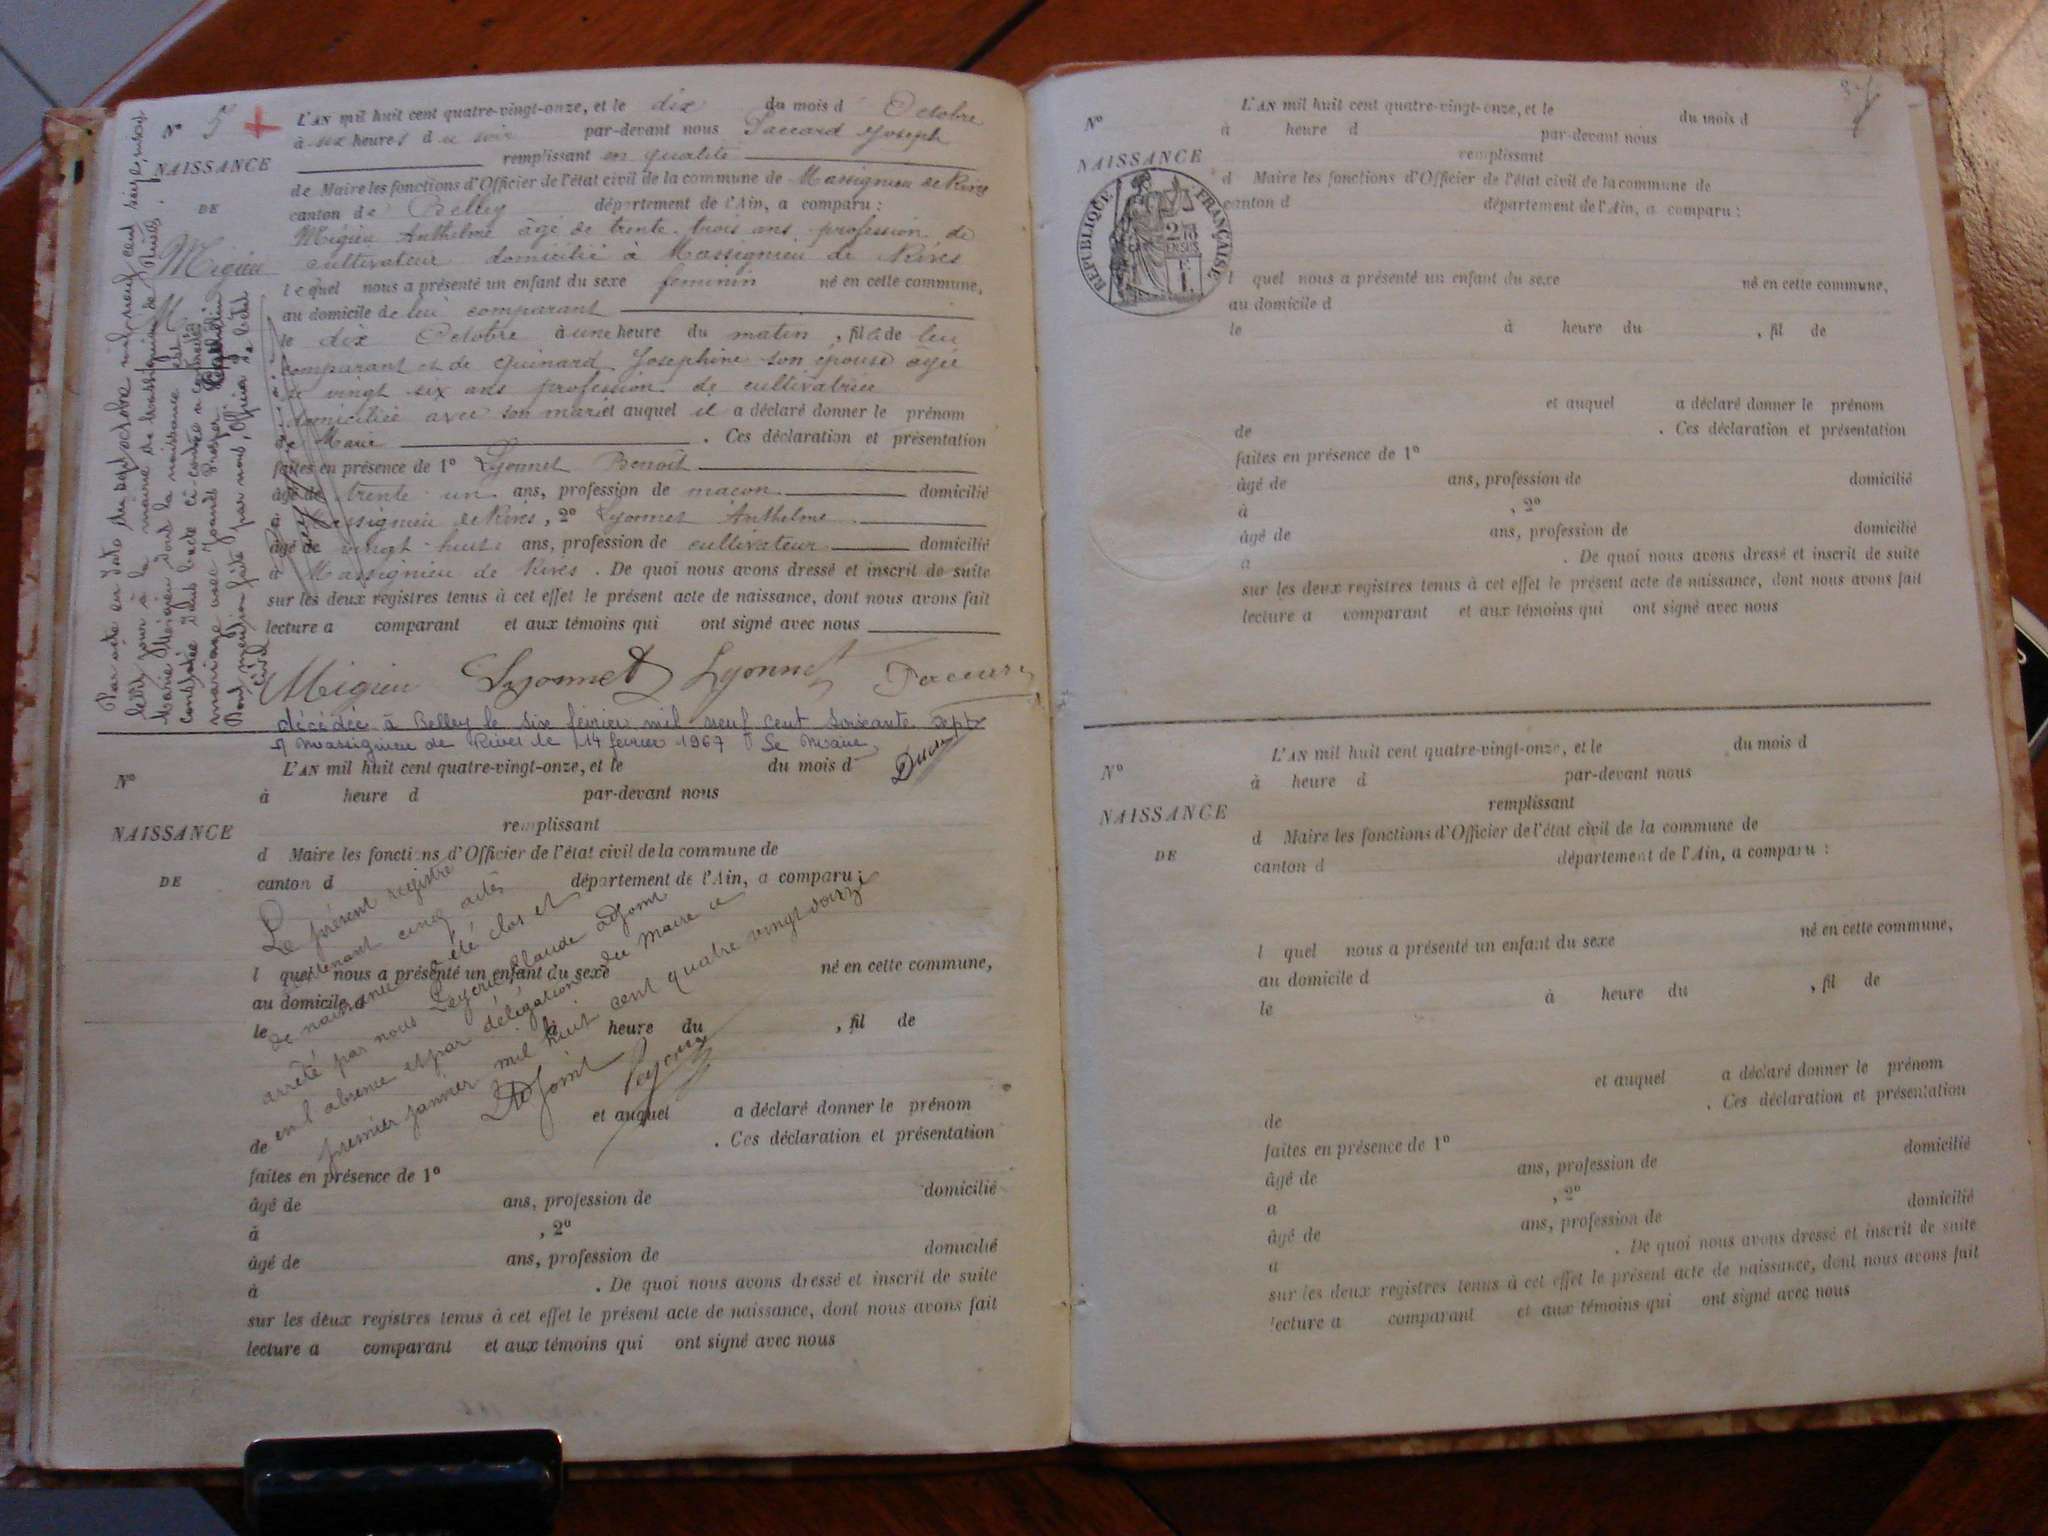 N° 5
NAISSANCE
DE
Migieu
L'AN mil huit cent quatre-vingt-onze, et le dix du mois d'Octobre
à six heures du soir par-devant nous Paccard Joseph
remplissant en qualité
de Maire les fonctions d'Officier de l'état civil de la commune de Massignieu de Rives
canton de Belley département de l'Ain, a comparu :
Migieu Anthelme âgé de trente trois ans profession de
cultivateur domicilié à Massignieu de Rives
lequel nous a présenté un enfant du sexe feminin né en cette commune,
au domicile de lui comparant
le dix Octobre à une heure du matin, fille de lui
comparant et de Guinard Josephine son épouse agée
de vingt six ans profession de cultivatrice
domiciliée avec son mari et auquel il a déclaré donner le prénom
de Marie . Ces déclaration et présentation
faites en présence de 1° Lyonnet Benoît
âgé de trente un ans, profession de maçon domicilié
à Massignieu de Rives, 2° Lyonnet Anthelme
âgé de vingt huit ans, profession de cultivateur domicilié
à Massignieu de Rives. De quoi nous avons dressé et inscrit de suite
sur les deux registres tenus à cet effet le présent acte de naissance, dont nous avons fait
lecture a comparant et aux témoins qui ont signé avec nous
Migieu Lyonnet Lyonnet Paccard
Par acte en date du sept octobre mil neuf cent
à la mairie de Massignieu de Rives
Marie Migieu dont la naissance est
constatée dans l'acte ci-contre a contracté
mariage avec
Dont mention faite par nous, Officier de l'état
civil
décédée à Belley le six février mil neuf cent soixante sept
Massignieu de Rives le 14 février 1967 Le Maire
N°
NAISSANCE
DE
L'AN mil huit cent quatre-vingt-onze, et le du mois d
à heure d par-devant nous
remplissant
d Maire les fonctions d'Officier de l'état civil de la commune de
canton d département de l'Ain, a comparu :
l quel nous a présenté un enfant du sexe né en cette commune,
au domicile d
le à heure du , fil de
et auquel a déclaré donner le prénom
de . Ces déclaration et présentation
faites en présence de 1°
âgé de ans, profession de domicilié
à , 2°
âgé de ans, profession de domicilié
à . De quoi nous avons dressé et inscrit de suite
sur les deux registres tenus à cet effet le présent acte de naissance, dont nous avons fait
lecture a comparant et aux témoins qui ont signé avec nous
Le présent registre
contenant cinq actes
de naissance a été clos et
arrêté par nous Peycru Claude adjoint
en l'absence et par délégation du Maire ce
premier janvier mil huit cent quatre vingt douze
L'Adjoint
N°
NAISSANCE
RÉPUBLIQUE FRANÇAISE
L'AN mil huit cent quatre-vingt-onze, et le du mois d
à heure d par-devant nous
remplissant
d Maire les fonctions d'Officier de l'état civil de la commune de
canton d département de l'Ain, a comparu :
l quel nous a présenté un enfant du sexe né en cette commune,
au domicile d
le à heure du , fil de
et auquel a déclaré donner le prénom
de . Ces déclaration et présentation
faites en présence de 1°
âgé de ans, profession de domicilié
à , 2°
âgé de ans, profession de domicilié
a . De quoi nous avons dressé et inscrit de suite
sur les deux registres tenus à cet effet le présent acte de naissance, dont nous avons fait
lecture a comparant et aux témoins qui ont signé avec nous
N°
NAISSANCE
DE
L'AN mil huit cent quatre-vingt-onze, et le du mois d
à heure d par-devant nous
remplissant
d Maire les fonctions d'Officier de l'état civil de la commune de
canton d département de l'Ain, a comparu :
l quel nous a présenté un enfant du sexe né en cette commune,
au domicile d
le à heure du , fil de
et auquel a déclaré donner le prénom
de . Ces déclaration et présentation
faites en présence de 1°
âgé de ans, profession de domicilié
a , 2°
âgé de ans, profession de domicilié
a . De quoi nous avons dressé et inscrit de suite
sur les deux registres tenus à cet effet le présent acte de naissance, dont nous avons fait
lecture a comparant et aux témoins qui ont signé avec nous